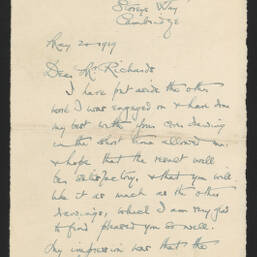 Storeys Way
Cambridge
May 20 1919
Dear Mr Richards
I have put aside the other
work I was engaged on & have done
my best with your own drawing
in the short time allowed me
& hope that the result will
be satisfactory, & that you will
like it as much as the other
drawings, which I am very glad
to find pleased you so well.
My impression was that the